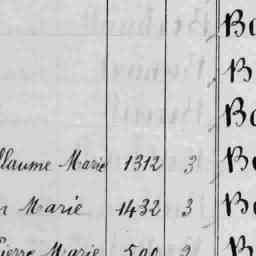 Bo
B
Bo
llaume Marie 1312 3 Bo
n Marie 1432 3 Bo
Pierre Marie 500 2 B